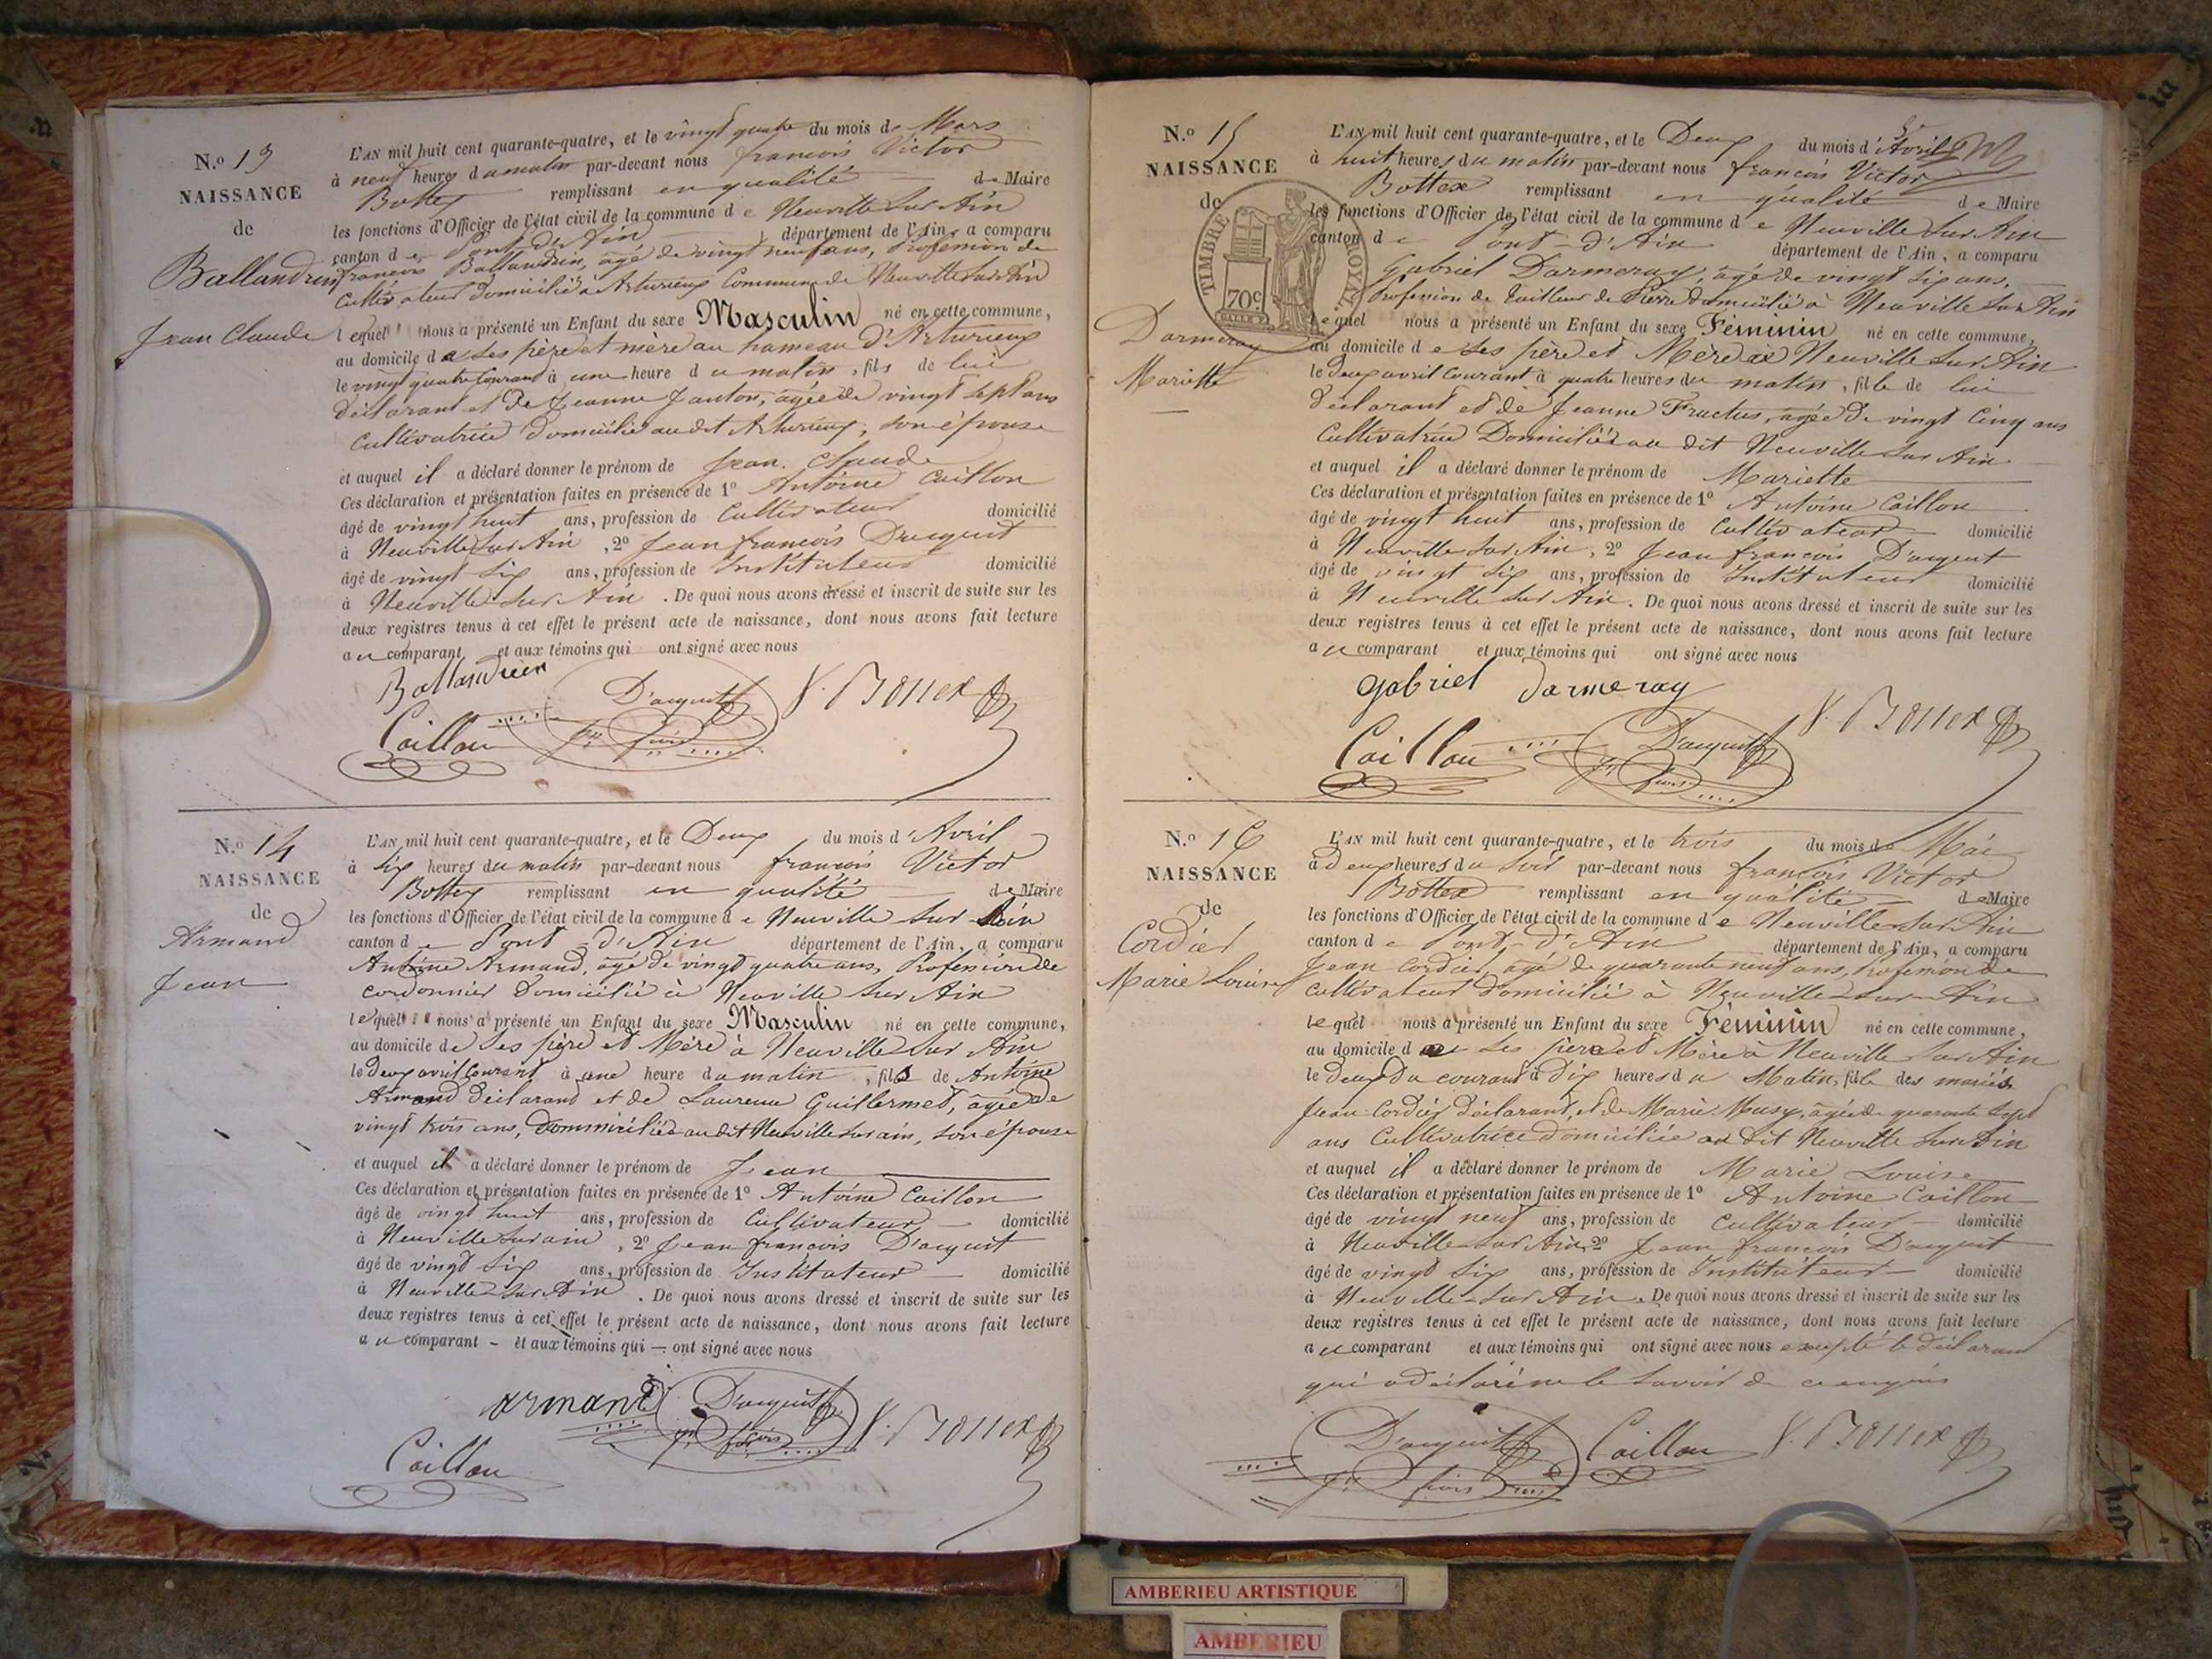 N.º 13
NAISSANCE
de
Ballandrin
Jean Claude
L'AN mil huit cent quarante-quatre, et le vingt quatre du mois de Mars
à neuf heures du matin par-devant nous françois Victor
Bottex remplissant en qualité de Maire
les fonctions d'Officier de l'état civil de la commune de Neuville sur Ain
canton de Pont d'Ain département de l'Ain, a comparu
françois Ballandrin, âgé de vingt neuf ans, Profession de
Cultivateur domicilié à Arturieux Commune de Neuville sur Ain
lequel nous a présenté un Enfant du sexe Masculin né en cette commune,
au domicile de ses père et mère au hameau d'Arturieux
le vingt quatre Courant à une heure du matin, fils de lui
déclarant et de Jeanne Janton, agée de vingt sept ans
Cultivatrice domicilié au dit Arturieux, son épouse
et auquel il a déclaré donner le prénom de Jean Claude
Ces déclaration et présentation faites en présence de 1º Antoine Caillon
âgé de vingt huit ans, profession de Cultivateur domicilié
à Neuville sur Ain, 2º Jean françois D'acquit
âgé de vingt six ans, profession de Instituteur domicilié
à Neuville sur Ain. De quoi nous avons dressé et inscrit de suite sur les
deux registres tenus à cet effet le présent acte de naissance, dont nous avons fait lecture
au comparant et aux témoins qui ont signé avec nous
Ballandrin
D'acquit
V. Bottex
Caillon
jn fcois
N.º 14
NAISSANCE
de
Armand
Jean
L'AN mil huit cent quarante-quatre, et le Deux du mois d'Avril
à six heures du matin par-devant nous françois Victor
Bottex remplissant en qualité de Maire
les fonctions d'Officier de l'état civil de la commune de Neuville sur Ain
canton de Pont-d'Ain département de l'Ain, a comparu
Antoine Armand, âgé de vingt quatre ans, Profession de
cordonnier Domicilié à Neuville sur Ain
lequel nous a présenté un Enfant du sexe Masculin né en cette commune,
au domicile de ses père et Mère à Neuville sur Ain
le Deux avril Courant à une heure du matin, fils de Antoine
Armand déclarant et de Laurence Guillermet, âgée de
vingt trois ans, Dommiciliée au dit Neuville sur ain, son épouse
et auquel il a déclaré donner le prénom de Jean
Ces déclaration et présentation faites en présence de 1º Antoine Caillon
âgé de vingt huit ans, profession de Cultivateur domicilié
à Neuville sur ain, 2º Jean françois D'acquit
âgé de vingt six ans, profession de Instituteur domicilié
à Neuville sur Ain. De quoi nous avons dressé et inscrit de suite sur les
deux registres tenus à cet effet le présent acte de naissance, dont nous avons fait lecture
au comparant - et aux témoins qui - ont signé avec nous
armand
D'acquit
jn fcois
V. Bottex
Caillon
N.º 15
NAISSANCE
de
TIMBRE ROYAL
70c
Darmeray
Mariette
L'AN mil huit cent quarante-quatre, et le Deux du mois d'Avril
à huit heures du matin par-devant nous françois Victor
Bottex remplissant en qualité de Maire
les fonctions d'Officier de l'état civil de la commune de Neuville sur Ain
canton de Pont-d'Ain département de l'Ain, a comparu
Gabriel Darmeray, âgé de vingt six ans,
Profession de Tailleur de Pierre domicilié à Neuville sur Ain
lequel nous a présenté un Enfant du sexe Féminin né en cette commune,
au domicile de ses père et Mère à Neuville sur Ain
le deux avril Courant à quatre heures du matin, fille de lui
déclarant et de Jeanne Fructus, agée de vingt Cinq ans
Cultivatrice Domiciliée au dit Neuville sur Ain
et auquel il a déclaré donner le prénom de Mariette
Ces déclaration et présentation faites en présence de 1º Antoine Caillon
âgé de vingt huit ans, profession de Cultivateur domicilié
à Neuville sur Ain, 2º Jean françois D'acquit
âgé de vingt six ans, profession de Instituteur domicilié
à Neuville sur Ain. De quoi nous avons dressé et inscrit de suite sur les
deux registres tenus à cet effet le présent acte de naissance, dont nous avons fait lecture
au comparant et aux témoins qui ont signé avec nous
gabriel darmeray
V. Bottex
Caillon
D'acquit
jn fcois
N.º 16
NAISSANCE
de
Cordier
Marie Louise
L'AN mil huit cent quarante-quatre, et le trois du mois de Mai
à deux heures du soir par-devant nous françois Victor
Bottex remplissant en qualité de Maire
les fonctions d'Officier de l'état civil de la commune de Neuville sur Ain
canton de Pont-d'Ain département de l'Ain, a comparu
Jean Cordier, agé de quarante neuf ans, Profession de
Cultivateur domicilié à Neuville sur Ain
lequel nous a présenté un Enfant du sexe Féminin né en cette commune,
au domicile de ses père et Mère à Neuville sur Ain
le deux du courant à dix heures du Matin, fille des mariés
Jean Cordier, déclarant, et de Marie Musy, âgée de quarante sept
ans Cultivatrice domiciliée au dit Neuville sur Ain
et auquel il a déclaré donner le prénom de Marie Louise
Ces déclaration et présentation faites en présence de 1º Antoine Caillon
âgé de vingt neuf ans, profession de Cultivateur domicilié
à Neuville sur Ain, 2º Jean françois D'acquit
âgé de vingt six ans, profession de Instituteur domicilié
à Neuville sur Ain. De quoi nous avons dressé et inscrit de suite sur les
deux registres tenus à cet effet le présent acte de naissance, dont nous avons fait lecture
au comparant et aux témoins qui ont signé avec nous excepté le déclarant
qui a déclaré ne le savoir de ce enquis
D'acquit
jn fcois
Caillon
V. Bottex
AMBERIEU ARTISTIQUE
AMBERIEU